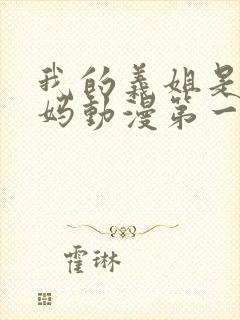 我的義姐是
妈動漫第一
霍琳